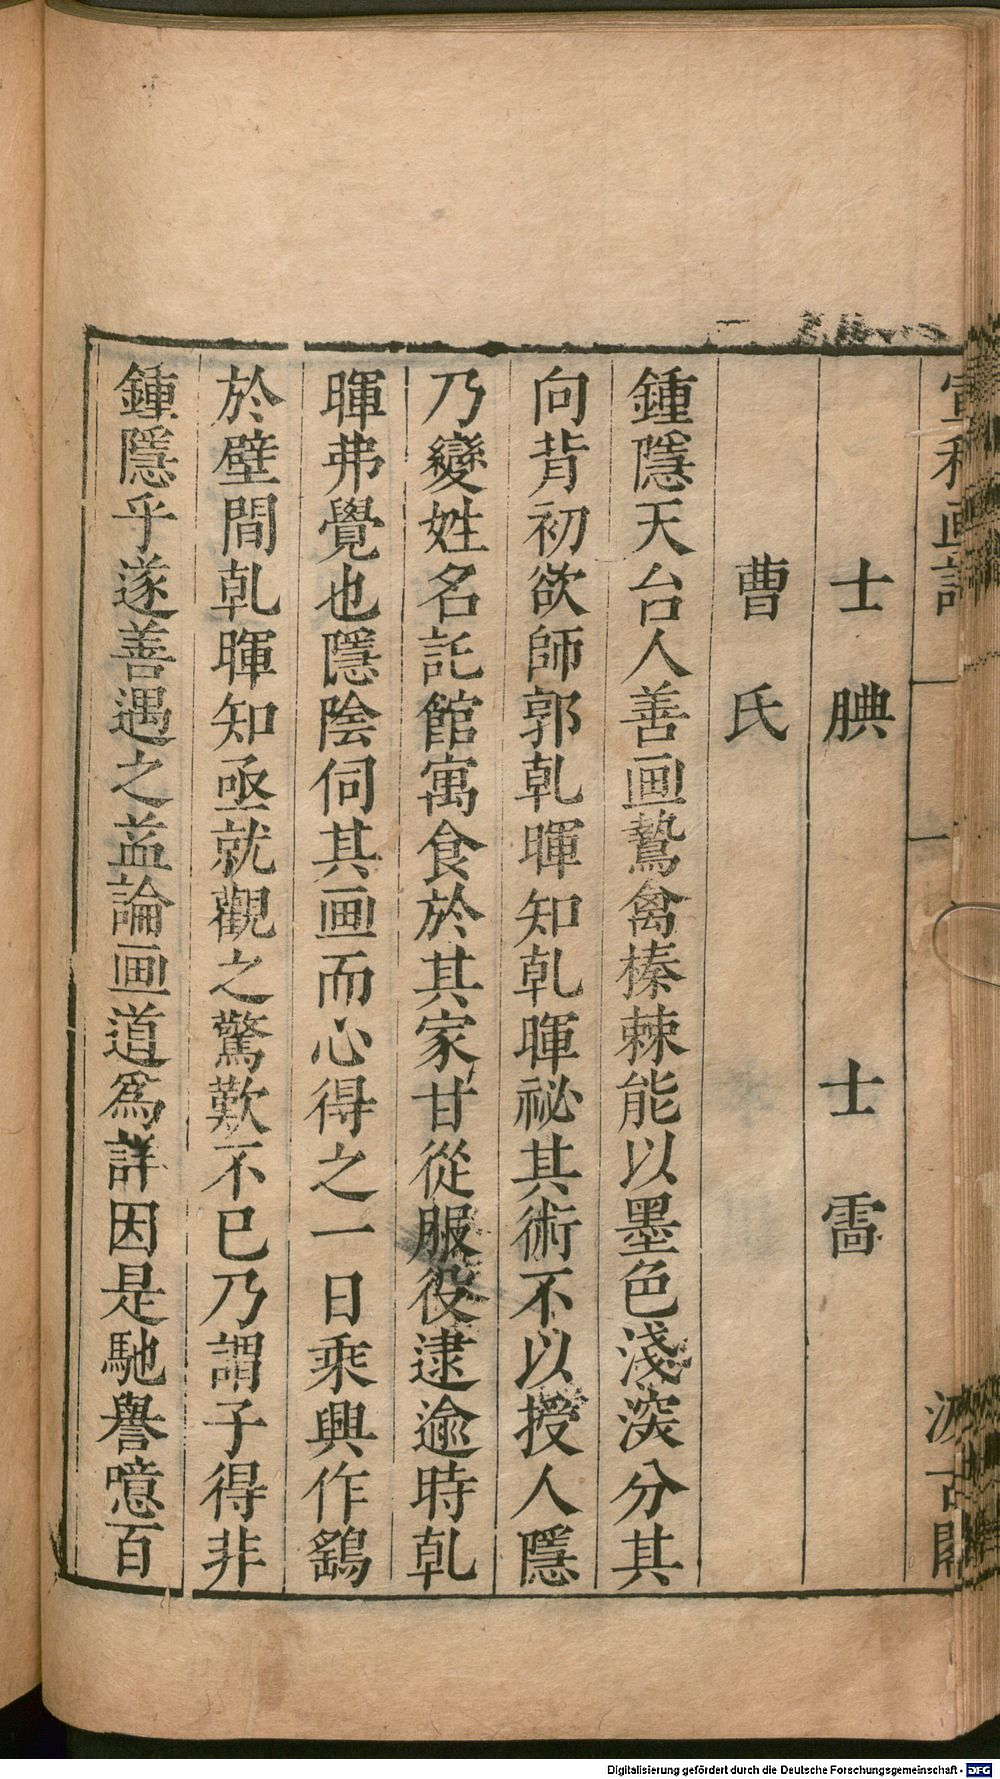 宣和画譜
汲古閣
士腆 士雷
曹氏
鍾隱天台人善画鷙禽榛棘能以墨色淺深分其
向背初欲師郭乹暉知乹暉祕其術不以授人隱
乃變姓名託館寓食於其家甘從服役逮逾時乹
暉弗覺也隱陰伺其画而心得之一日乘興作鷂
於壁間乹暉知亟就觀之驚歎不已乃謂子得非
鍾隱乎遂善遇之益論画道爲詳因是馳譽噫百
Digitalisierung gefördert durch die Deutsche Forschungsgemeinschaft - DFG